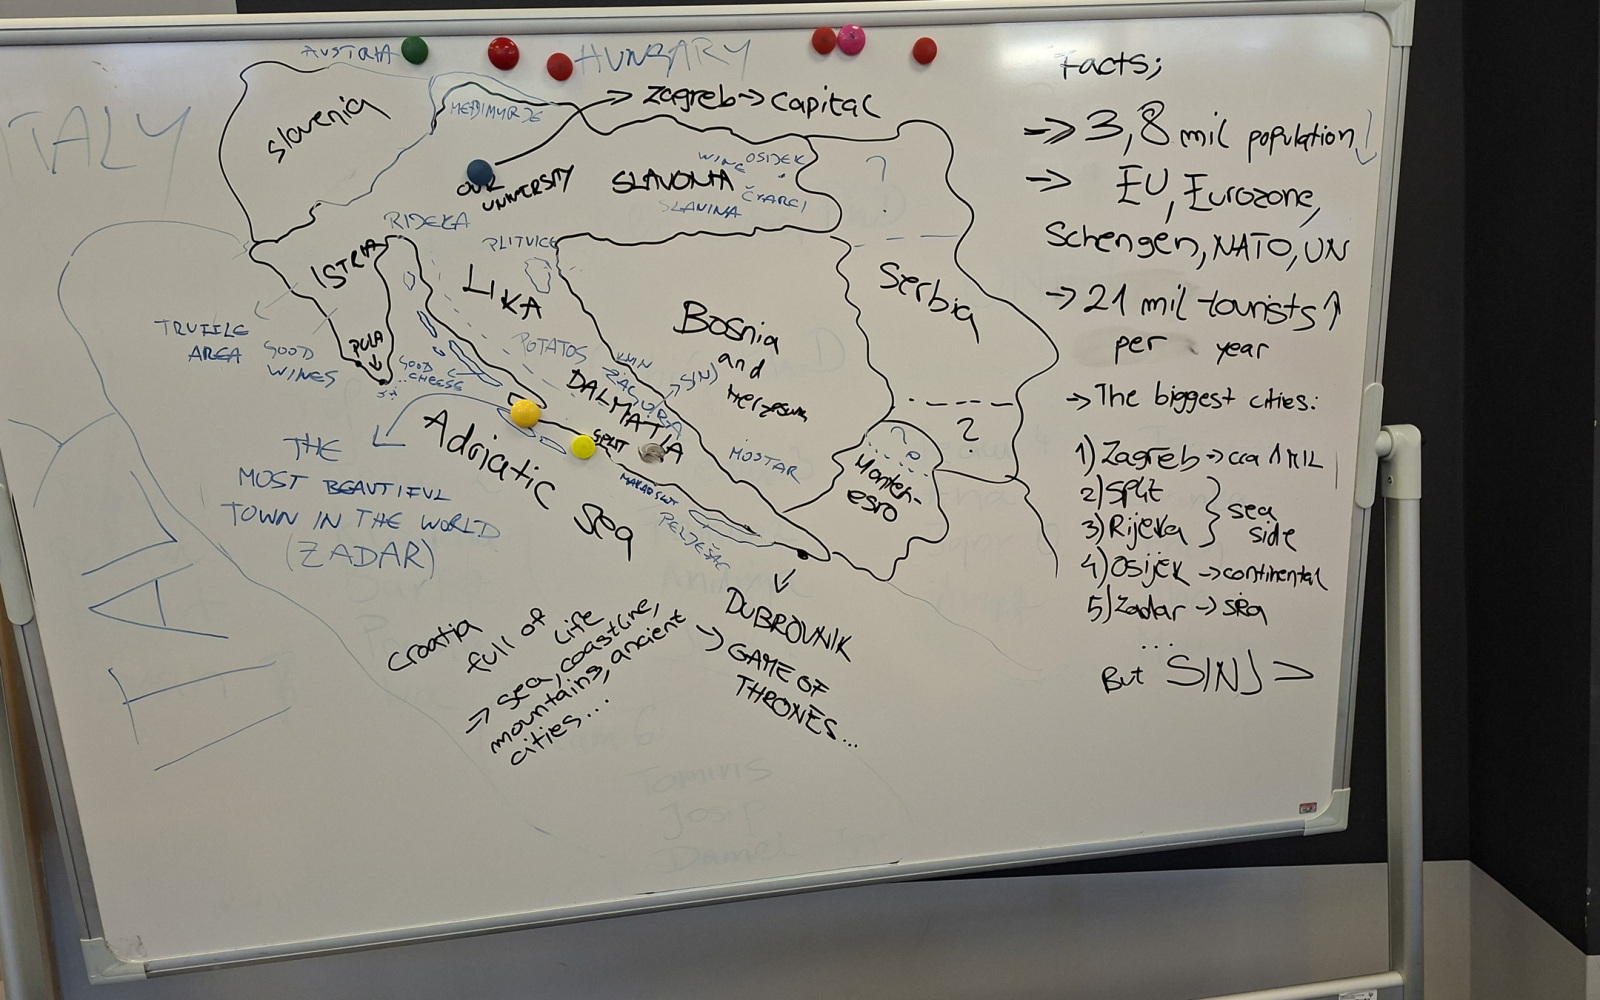 AUSTRIA
HUNGARY
ITALY
Slovenia
MEĐIMURJE
Zagreb → capital
OUR
UNIVERSITY
SLAVONIA
WINE
OSIJEK
ČVARCI
SLANINA
?
RIJEKA
PLITVICE
ISTRIA
LIKA
Bosnia
and
Serbia
TRUFFLE
AREA
GOOD
WINES
PULA
GOOD
CHEESE
POTATOS
KNIN
ZAGORA
SINJ
DALMATIA
SPLIT
MOSTAR
?
?
Monten-
egro
Adriatic Sea
PELJEŠAC
THE
MOST BEAUTIFUL
TOWN IN THE WORLD
(ZADAR)
Croatia
full of
life
→ sea, coastline,
mountains, ancient
cities...
DUBROVNIK
→ GAME OF
THRONES...
Facts;
→ 3,8 mil population ↓
→ EU, Eurozone,
Schengen, NATO, UN
→ 21 mil tourists ↑
per year
→ The biggest cities:
1) Zagreb → cca 1 MIL
2) Split
3) Rijeka
sea
side
4) Osijek → continental
5) Zadar → sea
...
But SINJ
Tominis
Josip
Daniel